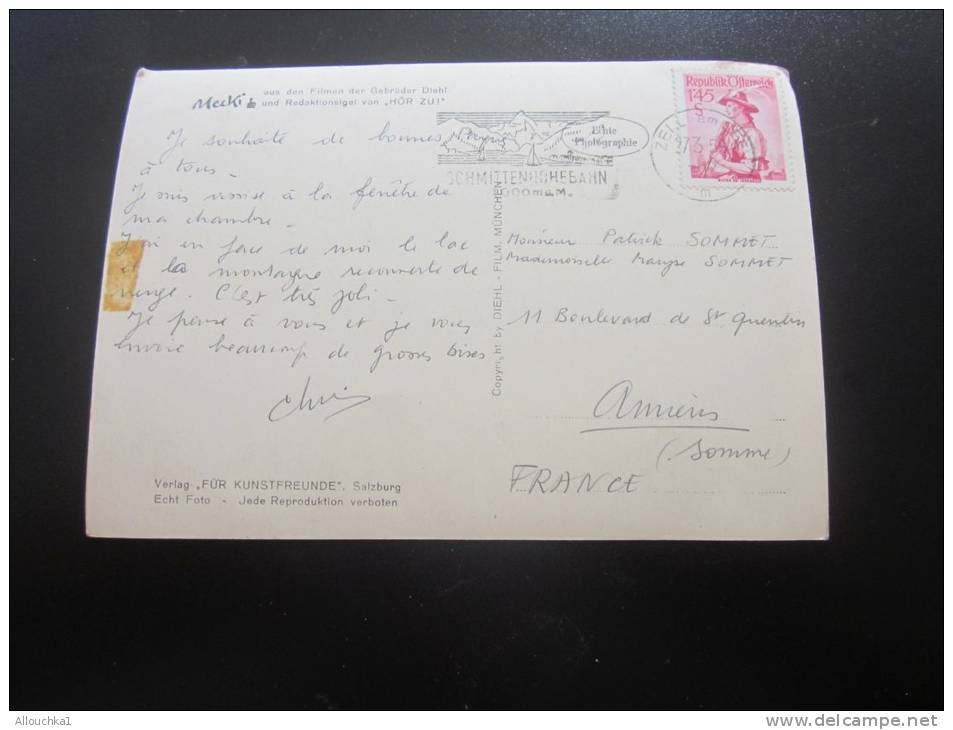 Mecki
aus den Filmen der Gebrüder Diehl
und Redaktionsigel von „HÖR ZU!"
Je souhaite de bonnes
à tous -
Je suis assise à la fenêtre de
ma chambre -
J'ai en face de moi le lac
et la montagne recouverte de
neige. C'est très joli -
Je pense à vous et je vous
envoie beaucoup de grosses bises
Verlag „FÜR KUNSTFREUNDE", Salzburg
Echt Foto - Jede Reproduktion verboten
Copyright by DIEHL - FILM, MÜNCHEN
Photographie
SCHMITTENHÖHEBAHN
2000 m ü.M.
Republik Österreich
1'45
S
ZELL AM SEE
Monsieur Patrick SOMMET
Mademoiselle Maryse SOMMET
11 Boulevard de St Quentin
Amiens
(Somme)
FRANCE
Allouchka1
www.delcampe.net